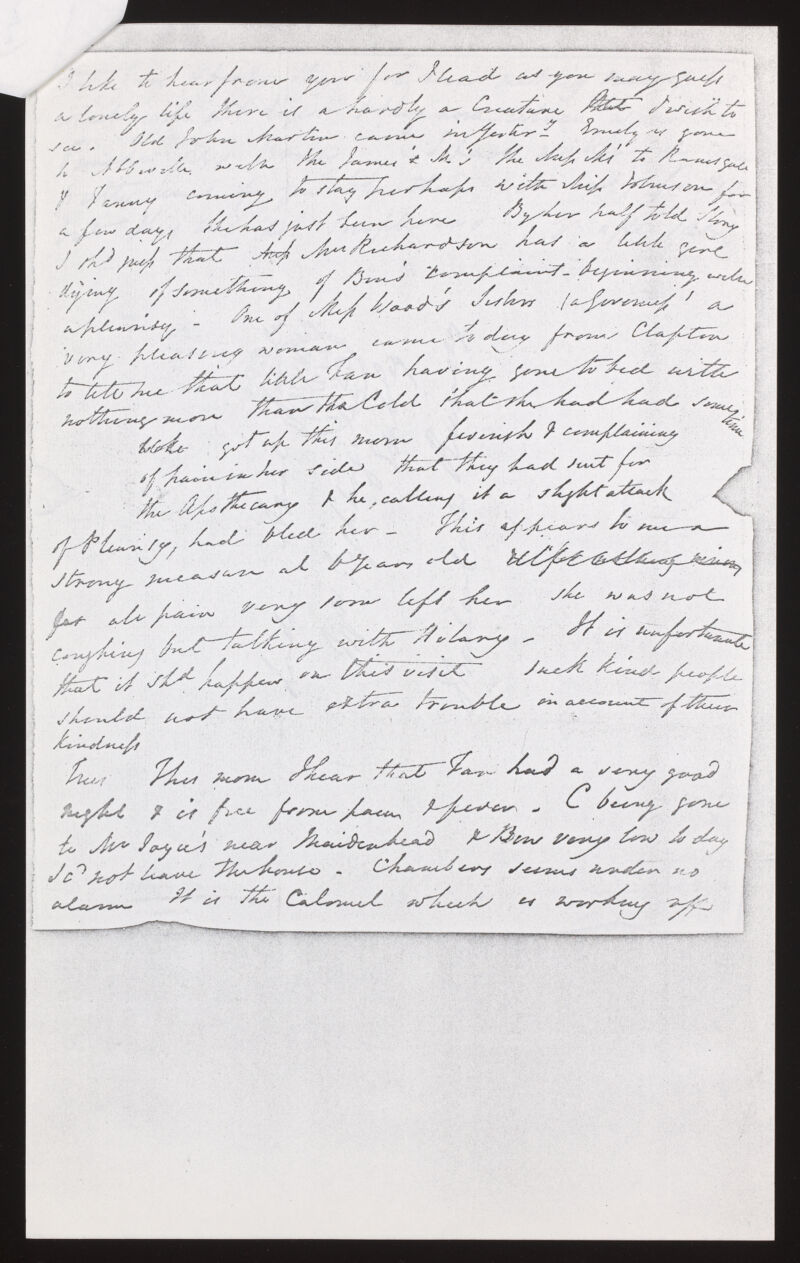 I like to hear from you for I lead as you may guess
a lonely life there is a hardly a Creature I wish to
see. Old John Martin came in Yester.y Emily is gone
to Abbeville with the James's & M's the Miss Ms to Ramsgate
& Fanny coming to stay perhaps with Miss Johnson for
a few days she has just been here By her half told Story
I shd guess that Mrs Richardson has a little girl
dying of something of Bin's complaint - beginning with
a pleurisy - One of Miss Wood's Sisters (a Governess) a
very pleasing woman came to day from Clapton
to tell me that little Fan having gone to bed with
nothing more than the Cold that she had had some time
woke got up this morn feverish & complaining
of pain in her side that they had sent for
the Apothecary & he, calling it a slight attack
of Pleurisy, had bled her - This appears to me a
strong measure at 6 Years old
for all pain very soon left her she was not
coughing but talking with Hilary - It is unfortunate
that it shd happen on this visit such kind people
should not have extra trouble on account of their
kindness
Tues This morn I hear that Fan had a very good
night & is free from pain & fever - C being gone
to Mr near Maidenhead & Bin very low to day
I cd not leave the house - Chambers seems under no
alarm It is the Calomel which is working off